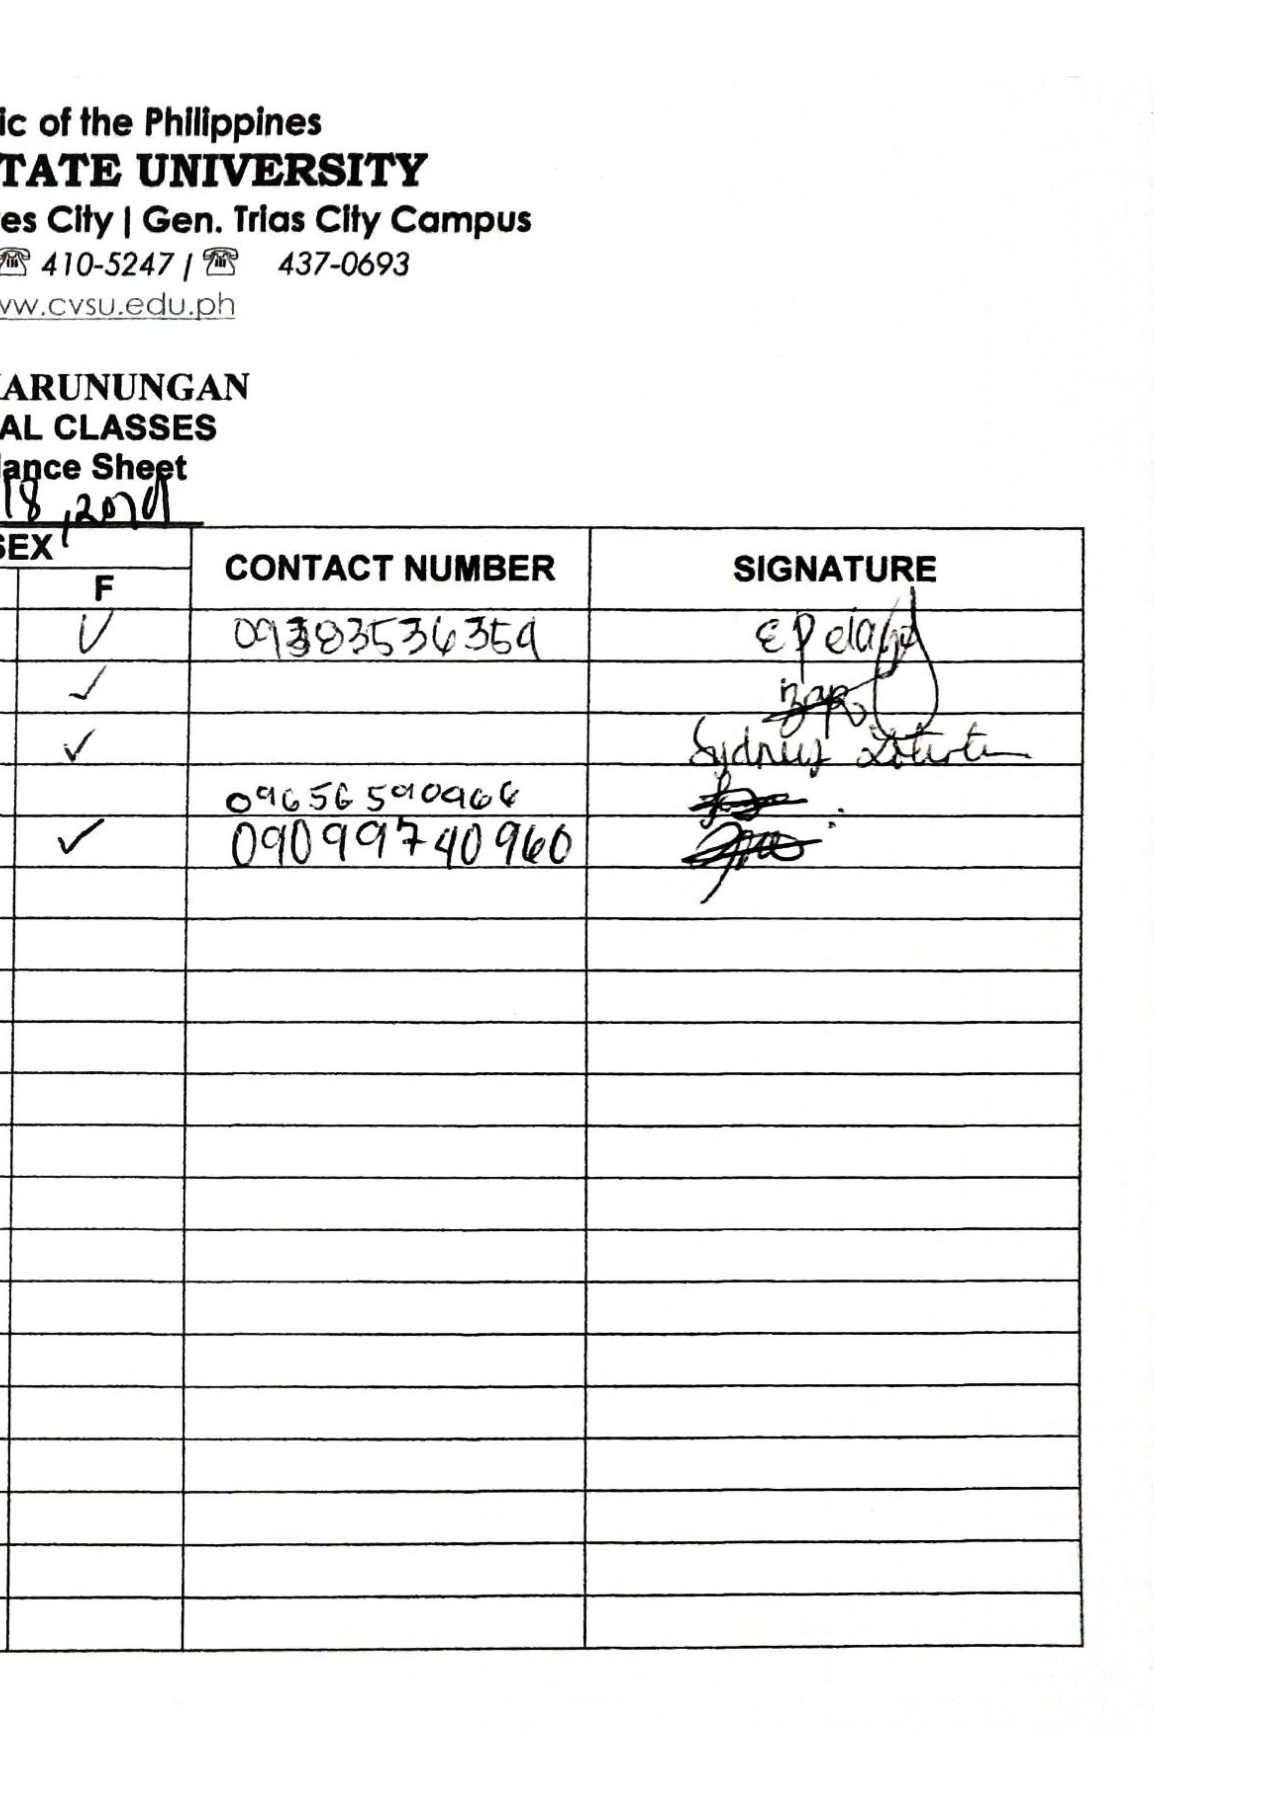 ic of the Philippines
TATE UNIVERSITY
es City | Gen. Trias City Campus
☎ 410-5247 / ☎ 437-0693
ww.cvsu.edu.ph
KARUNUNGAN
AL CLASSES
dance Sheet
18, 2019
SEX
CONTACT NUMBER
SIGNATURE
F
09383536359
09656590966
Sydney
09099740960